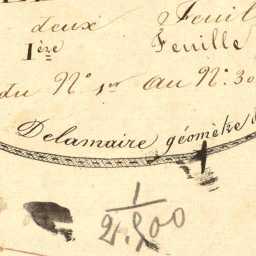 deux Feuil
1ère Feuille
du N° 1er au N° 30
Delamaire géomètre
1
2.500